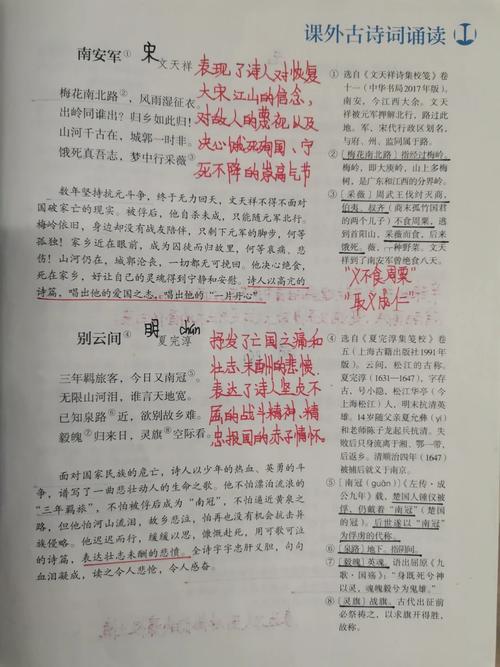 课外古诗词诵读 I
南安军① 宋 文天祥
表现了诗人对恢复
大宋江山的信念,
对敌人的蔑视以及
决心饿死殉国、宁
死不降的崇高气节
梅花南北路②,风雨湿征衣。
出岭同谁出?归乡如此归!
山河千古在,城郭一时非。
饿死真吾志,梦中行采薇③。
数年坚持抗元斗争,终于无力回天,文天祥不得不面对
国破家亡的现实。被俘后,他自杀未成,只能随元军北行。
梅岭依旧,身边却没有战友陪伴,只剩下元军的脚步,何等
孤独!家乡近在眼前,成为囚徒而归故里,何等哀痛、悲
伤!山河仍在,城郭沦丧,一切都无可挽回。他决心绝食,
死在家乡,好让自己的灵魂得到宁静和安慰。诗人以高亢的
诗篇,唱出他的爱国之志,唱出他的“一片丹心”。
别云间④ 明 chún
夏完淳
抒发了亡国之痛和
壮志未酬的悲愤,
表达了诗人坚贞不
屈的战斗精神、精
忠报国的赤子情怀。
三年羁旅客,今日又南冠⑤。
无限山河泪,谁言天地宽。
已知泉路⑥近,欲别故乡难。
毅魄⑦归来日,灵旗⑧空际看。
面对国家民族的危亡,诗人以少年的热血、英勇的斗
争,谱写了一曲悲壮动人的生命之歌。他不怕漂泊流浪的
“三年羁旅”,不怕被俘后成为“南冠”,不怕逼近黄泉之
路,但他怕河山流泪,故乡悲泣,怕再也没有机会抗击异
族侵略。他迟迟而行,缓缓以思,慷慨赴死,用可歌可泣
的诗篇,表达壮志未酬的悲愤。全诗字字忠肝义胆,句句
血泪凝成,读之令人悲怆,令人感奋。
① 选自《文天祥诗集校笺》卷
十一(中华书局2017年版)。
南安,今江西大余。文天祥
被元军押解北行,路过此
地。军,宋代行政区划名,
与府、州、监同属于路。
②〔梅花南北路〕指经过梅岭。
梅岭,即大庾岭,山上多梅
树,是广东和江西的分界岭。
③〔采薇〕周武王伐纣灭商,
伯夷、叔齐(商末孤竹国君
的两个儿子)不食周粟,逃
到首阳山,采薇而食,后来
饿死。薇,一种野菜。文天祥
到了南安军曾绝食八天。
“义不食周粟”
“取义成仁”
④ 选自《夏完淳集笺校》卷
五(上海古籍出版社1991年
版)。云间,松江的古称。
夏完淳(1631—1647),字存
古,号小隐,松江华亭(今
上海松江)人,明末抗清英
雄。14岁随父亲夏允彝(yí)
和老师陈子龙起兵抗清。失
败后只身流离于湘、鄂一带,
后返乡。清顺治四年(1647)
被捕后就义于南京。
⑤〔南冠(guān)〕《左传·成
公九年》载,楚国人锺仪被
俘,仍戴着“南冠”(楚国的
冠)。后世遂以“南冠”
为俘虏的代称。
⑥〔泉路〕地下。指阴间。
⑦〔毅魄〕英魂。语出屈原《九
歌·国殇》:“身既死兮神
以灵,魂魄毅兮为鬼雄。”
⑧〔灵旗〕战旗。古代出征前
必祭祷之,以求旗开得胜,
故称。